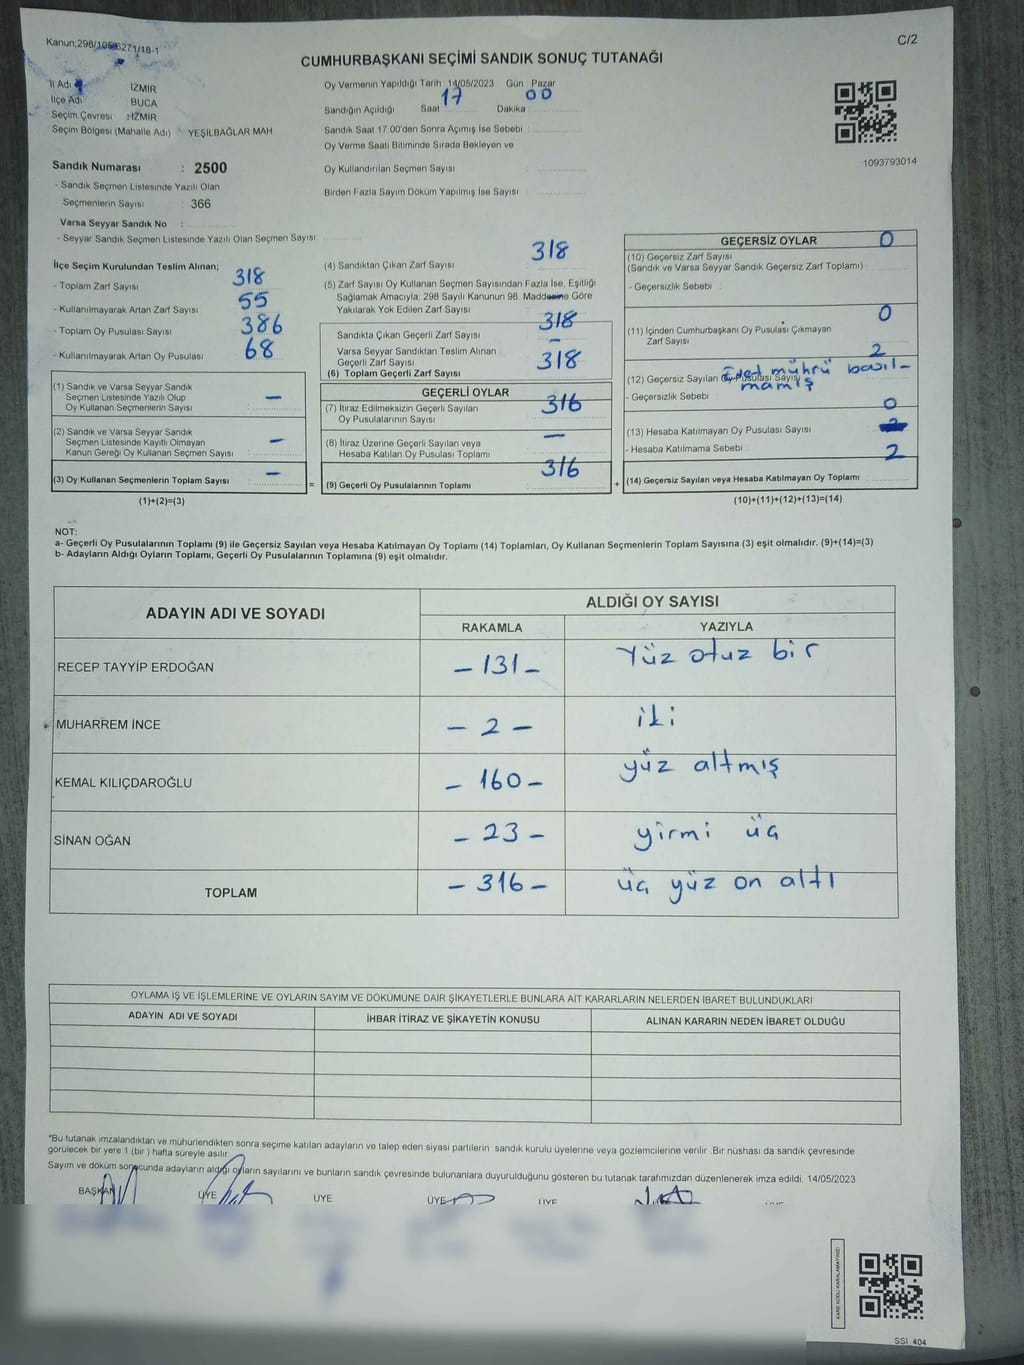 Kanun;298/105-6271/18-1
C/2
CUMHURBAŞKANI SEÇİMİ SANDIK SONUÇ TUTANAĞI
İl Adı : İZMİR
İlçe Adı BUCA
Seçim Çevresi : İZMİR
Seçim Bölgesi (Mahalle Adı) YEŞİLBAĞLAR MAH
Sandık Numarası : 2500
- Sandık Seçmen Listesinde Yazılı Olan
Seçmenlerin Sayısı : 366
Varsa Seyyar Sandık No :
- Seyyar Sandık Seçmen Listesinde Yazılı Olan Seçmen Sayısı
Oy Vermenin Yapıldığı Tarih 14/05/2023 Gün : Pazar
Sandığın Açıldığı Saat 17 Dakika 00
Sandık Saat 17.00'den Sonra Açımış İse Sebebi
Oy Verme Saati Bitiminde Sırada Bekleyen ve
Oy Kullandırılan Seçmen Sayısı
Birden Fazla Sayım Döküm Yapılmış İse Sayısı
1093793014
İlçe Seçim Kurulundan Teslim Alınan;
- Toplam Zarf Sayısı 318
- Kullanılmayarak Artan Zarf Sayısı 55
- Toplam Oy Pusulası Sayısı 386
- Kullanılmayarak Artan Oy Pusulası 68
(1) Sandık ve Varsa Seyyar Sandık
Seçmen Listesinde Yazılı Olup
Oy Kullanan Seçmenlerin Sayısı –
(2) Sandık ve Varsa Seyyar Sandık
Seçmen Listesinde Kayıtlı Olmayan
Kanun Gereği Oy Kullanan Seçmen Sayısı –
(3) Oy Kullanan Seçmenlerin Toplam Sayısı –
(1)+(2)=(3)
=
(4) Sandıktan Çıkan Zarf Sayısı 318
(5) Zarf Sayısı Oy Kullanan Seçmen Sayısından Fazla İse, Eşitliği
Sağlamak Amacıyla, 298 Sayılı Kanunun 98. Maddesine Göre
Yakılarak Yok Edilen Zarf Sayısı
Sandıkta Çıkan Geçerli Zarf Sayısı 318
Varsa Seyyar Sandıktan Teslim Alınan –
Geçerli Zarf Sayısı
(6) Toplam Geçerli Zarf Sayısı 318
GEÇERLİ OYLAR
(7) İtiraz Edilmeksizin Geçerli Sayılan 316
Oy Pusulasının Sayısı
(8) İtiraz Üzerine Geçerli Sayılan veya –
Hesaba Katılan Oy Pusulası Toplamı
(9) Geçerli Oy Pusulalarının Toplamı 316
+
GEÇERSİZ OYLAR
(10) Geçersiz Zarf Sayısı 0
(Sandık ve Varsa Seyyar Sandık Geçersiz Zarf Toplamı)
- Geçersizlik Sebebi :
(11) İçinden Cumhurbaşkanı Oy Pusulası Çıkmayan 0
Zarf Sayısı
(12) Geçersiz Sayılan Oy Pusulası Sayısı 2
- Geçersizlik Sebebi Evet mührü basıl-
mamış
(13) Hesaba Katılmayan Oy Pusulası Sayısı 0
- Hesaba Katılmama Sebebi
(14) Geçersiz Sayılan veya Hesaba Katılmayan Oy Toplamı 2
(10)+(11)+(12)+(13)=(14)
NOT:
a- Geçerli Oy Pusulalarının Toplamı (9) ile Geçersiz Sayılan veya Hesaba Katılmayan Oy Toplamı (14) Toplamları, Oy Kullanan Seçmenlerin Toplam Sayısına (3) eşit olmalıdır. (9)+(14)=(3)
b- Adayların Aldığı Oyların Toplamı, Geçerli Oy Pusulalarının Toplamına (9) eşit olmalıdır.
ADAYIN ADI VE SOYADI
ALDIĞI OY SAYISI
RAKAMLA YAZIYLA
RECEP TAYYİP ERDOĞAN – 131 – Yüz otuz bir
MUHARREM İNCE – 2 – iki
KEMAL KILIÇDAROĞLU – 160 – yüz altmış
SİNAN OĞAN – 23 – yirmi üç
TOPLAM – 316 – üç yüz on altı
OYLAMA İŞ VE İŞLEMLERİNE VE OYLARIN SAYIM VE DÖKÜMÜNE DAİR ŞİKAYETLERLE BUNLARA AİT KARARLARIN NELERDEN İBARET BULUNDUKLARI
ADAYIN ADI VE SOYADI İHBAR İTİRAZ VE ŞİKAYETİN KONUSU ALINAN KARARIN NEDEN İBARET OLDUĞU
*Bu tutanak imzalandıktan ve mühürlendikten sonra seçime katılan adayların ve talep eden siyasi partilerin sandık kurulu üyelerine veya gözlemcilerine verilir. Bir nüshası da sandık çevresinde
görülecek bir yere 1 (bir ) hafta süreyle asılır
Sayım ve döküm sonucunda adayların aldığı oyların sayılarını ve bunların sandık çevresinde bulunanlara duyurulduğunu gösteren bu tutanak tarafımızdan düzenlenerek imza edildi. 14/05/2023
BAŞKAN ÜYE ÜYE ÜYE ÜYE
KARE KODU KARALAMAYINIZ!
SSI 404